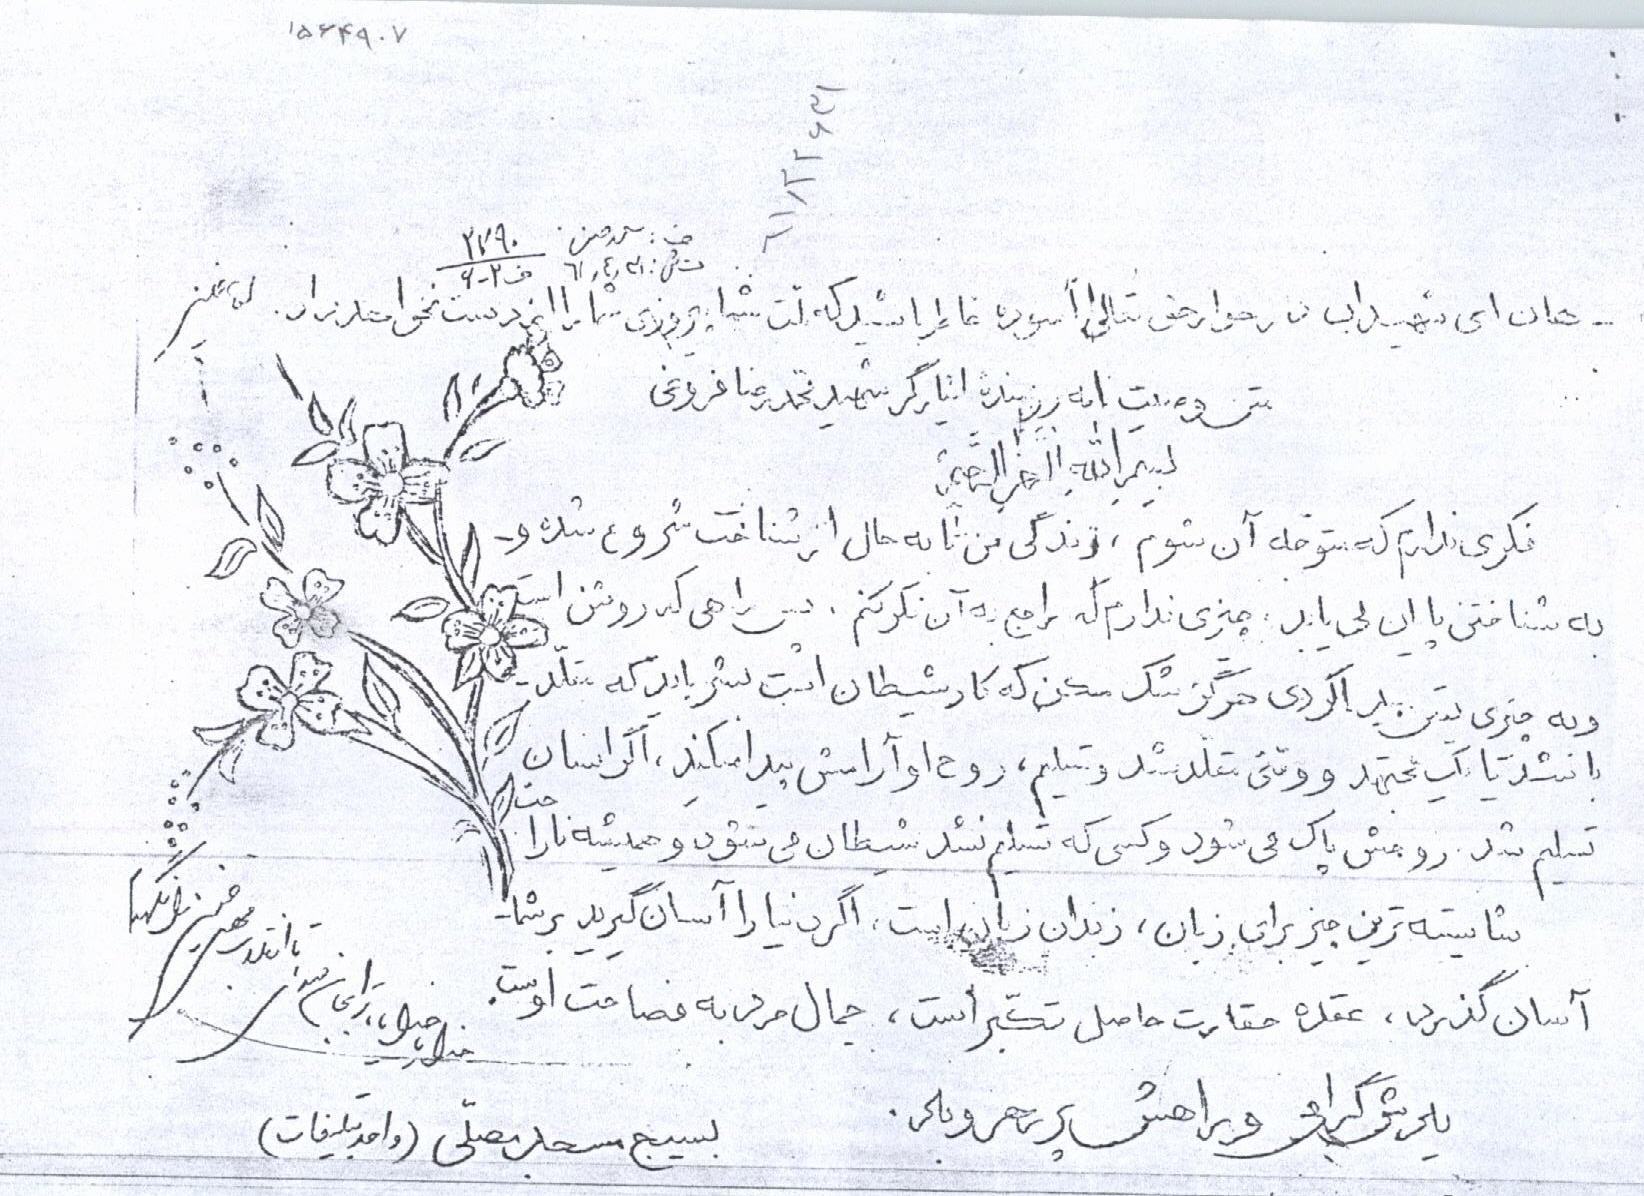 ۱۵۶۴۹۰۷
۲۷۹۰
ف-۲-۶
- هان ای شهیدان در جوار حق تعالی آسوده خاطر باشید که ملت شما پیروزی شما را از دست نخواهند داد. امام خمینی
متن وصیت نامه رزمنده ایثارگر شهید محمدرضا فروغی
بسم الله الرحمن الرحیم
فکری ندارم که متوجه آن شوم ، زندگی من تا به حال از شناخت شروع شده و-
به شناختن پایان می یابد ، چیزی ندارم که راجع به آن ذکر کنم ، پس راهی که روشن است
و به چیزی یقین پیدا کردی هرگز شک مکن که کار شیطان است بشر باید که مقلد-
باشد تا یک مجتهد و وقتی مقلد شد و تسلیم ، روح او آرامش پیدا میکند ، اگر انسان
تسلیم شد ، روحش پاک می شود و کسی که تسلیم نشد شیطان می شود و همیشه ما را
شایسته ترین چیز برای زبان ، زندان زبان است ، اگر دنیا را آسان گیرید بر شما-
آسان گذرد ، عقده حقارت حاصل تکبر است ، جمال مرد به فصاحت اوست.
خدایا خدایا تا انقلاب مهدی خمینی را نگهدار
یادش گرامی و راهش پر رهرو باد.
بسیج مسجد مصلی (واحد تبلیغات)